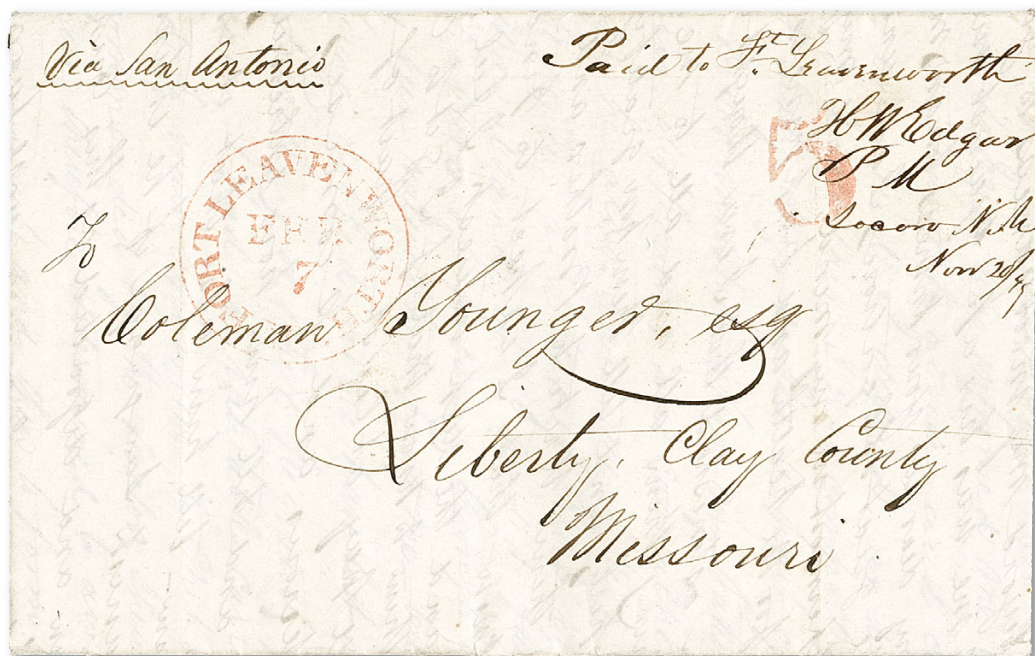 Via San Antonio
Paid to Ft. Leavenworth
HW Edgar
P M
Socoro N.M
Nov 20/
5
FORT LEAVENWORTH
FEB
7
To
Coleman Younger, esq
Liberty, Clay County
Missouri